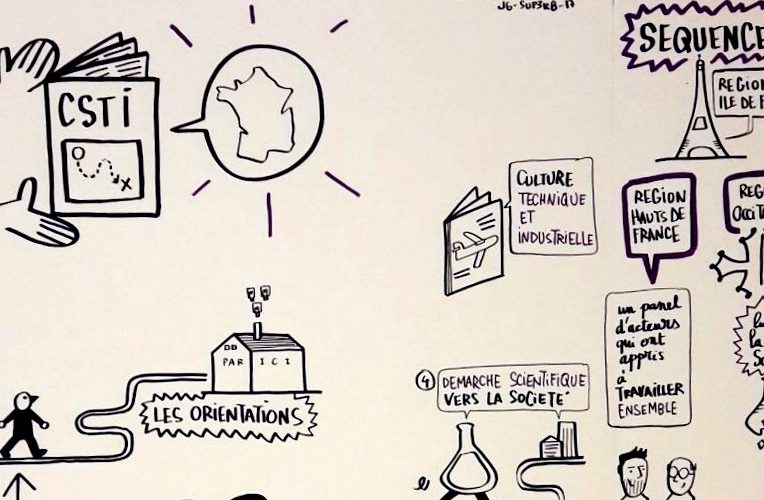 CSTi
PAR ICI
LES ORIENTATIONS
CULTURE
TECHNIQUE
ET
INDUSTRIELLE
4 DEMARCHE SCIENTIFIQUE
VERS LA SOCIETE
SEQUENCE
REGION
ILE DE F
REGION
HAUTS DE
FRANCE
un panel
d'acteurs
qui ont
appris
à
TRAVAILLER
ENSEMBLE
REG
OCCIT
la